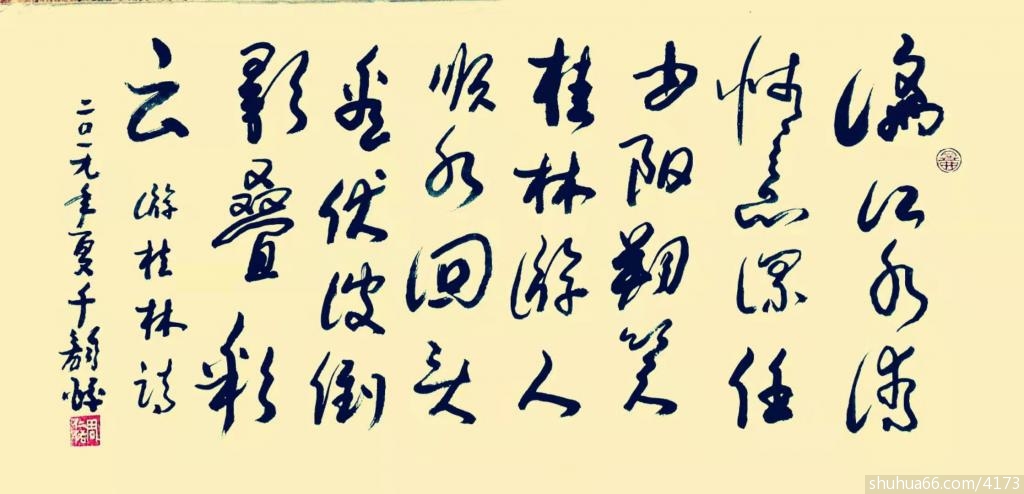 漓江水
情意深任
由阳朔笑
桂林游人
顺水回头
看伏波倒
影叠彩
云 游桂林诗
二〇一九年夏千
shuhua66.com/4173